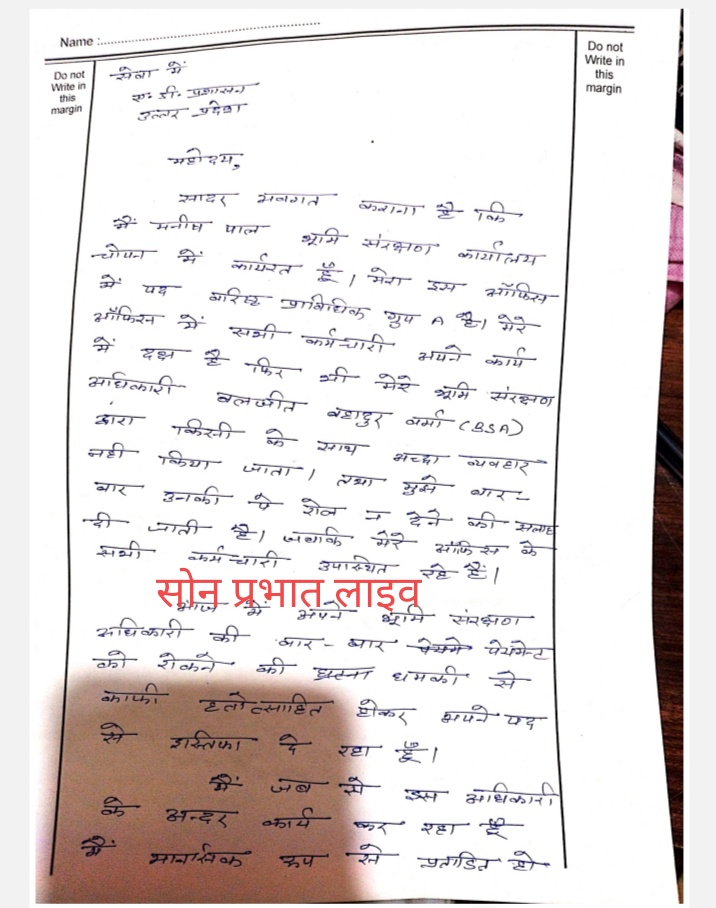 Name :
Do not
Write in
this
margin
Do not
Write in
this
margin
सेवा में
ए. डी. प्रशासन
उत्तर प्रदेश
महोदय,
सादर अवगत कराना है कि
मैं मनीष पाल भूमि संरक्षण कार्यालय
चोपन में कार्यरत हूँ। मेरा इस ऑफिस
में पद वरिष्ट प्राविधिक ग्रुप A है। मेरे
ऑफिस में सभी कर्मचारी अपने कार्य
में दक्ष है फिर भी मेरे भूमि संरक्षण
अधिकारी बलजीत बहादुर वर्मा (BSA)
द्वारा किसी के साथ अच्छा व्यवहार
नही किया जाता। तथा मुझे बार-
बार उनकी पे रोल न देने की सलाह
दी जाती है। जबकि मेरे ऑफिस के
सभी कर्मचारी उपस्थित रहे हैं।
सोन प्रभात लाइव
आज में अपने भूमि संरक्षण
अधिकारी की बार-बार पेयमेन्ट
को रोकने की धमकी से
काफी हतोत्साहित होकर अपने पद
से इस्तिफा दे रहा हूँ।
मैं जब से इस अधिकारी
के अन्दर कार्य कर रहा हूँ
मैं मानसिक रूप से प्रताडित हो